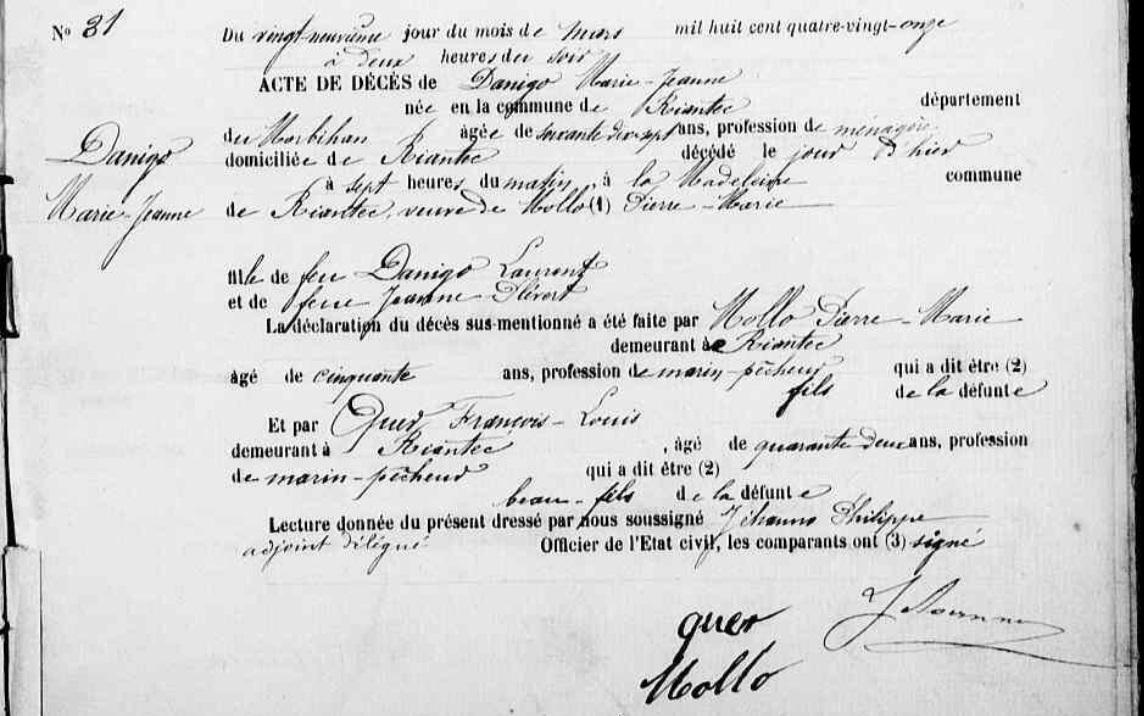 No 31
Du vingt-neuvième jour du mois de mars mil huit cent quatre-vingt-onze
à deux heures du soir
ACTE DE DÉCÈS de Danigo Marie-Jeanne
née en la commune de Riantec département
du Morbihan âgée de soixante dix-sept ans, profession de ménagère
Danigo
Marie-Jeanne
domiciliée de Riantec décédé le jour d'hier
à sept heures du matin, à la Madeleine commune
de Riantec, veuve de Mollo (1) Pierre-Marie
fille de feu Danigo Laurent
et de feue Jeanne
La déclaration du décès sus-mentionné a été faite par Mollo Pierre-Marie
demeurant à Riantec
âgé de cinquante ans, profession de marin-pêcheur qui a dit être (2)
fils de la défunte
Et par Quer François-Louis
demeurant à Riantec, âgé de quarante-deux ans, profession
de marin-pêcheur qui a dit être (2)
beau-fils de la défunte
Lecture donnée du présent dressé par nous soussigné Jéhanno Philippe
adjoint délégué Officier de l'Etat civil, les comparants ont (3) signé
quer
Mollo